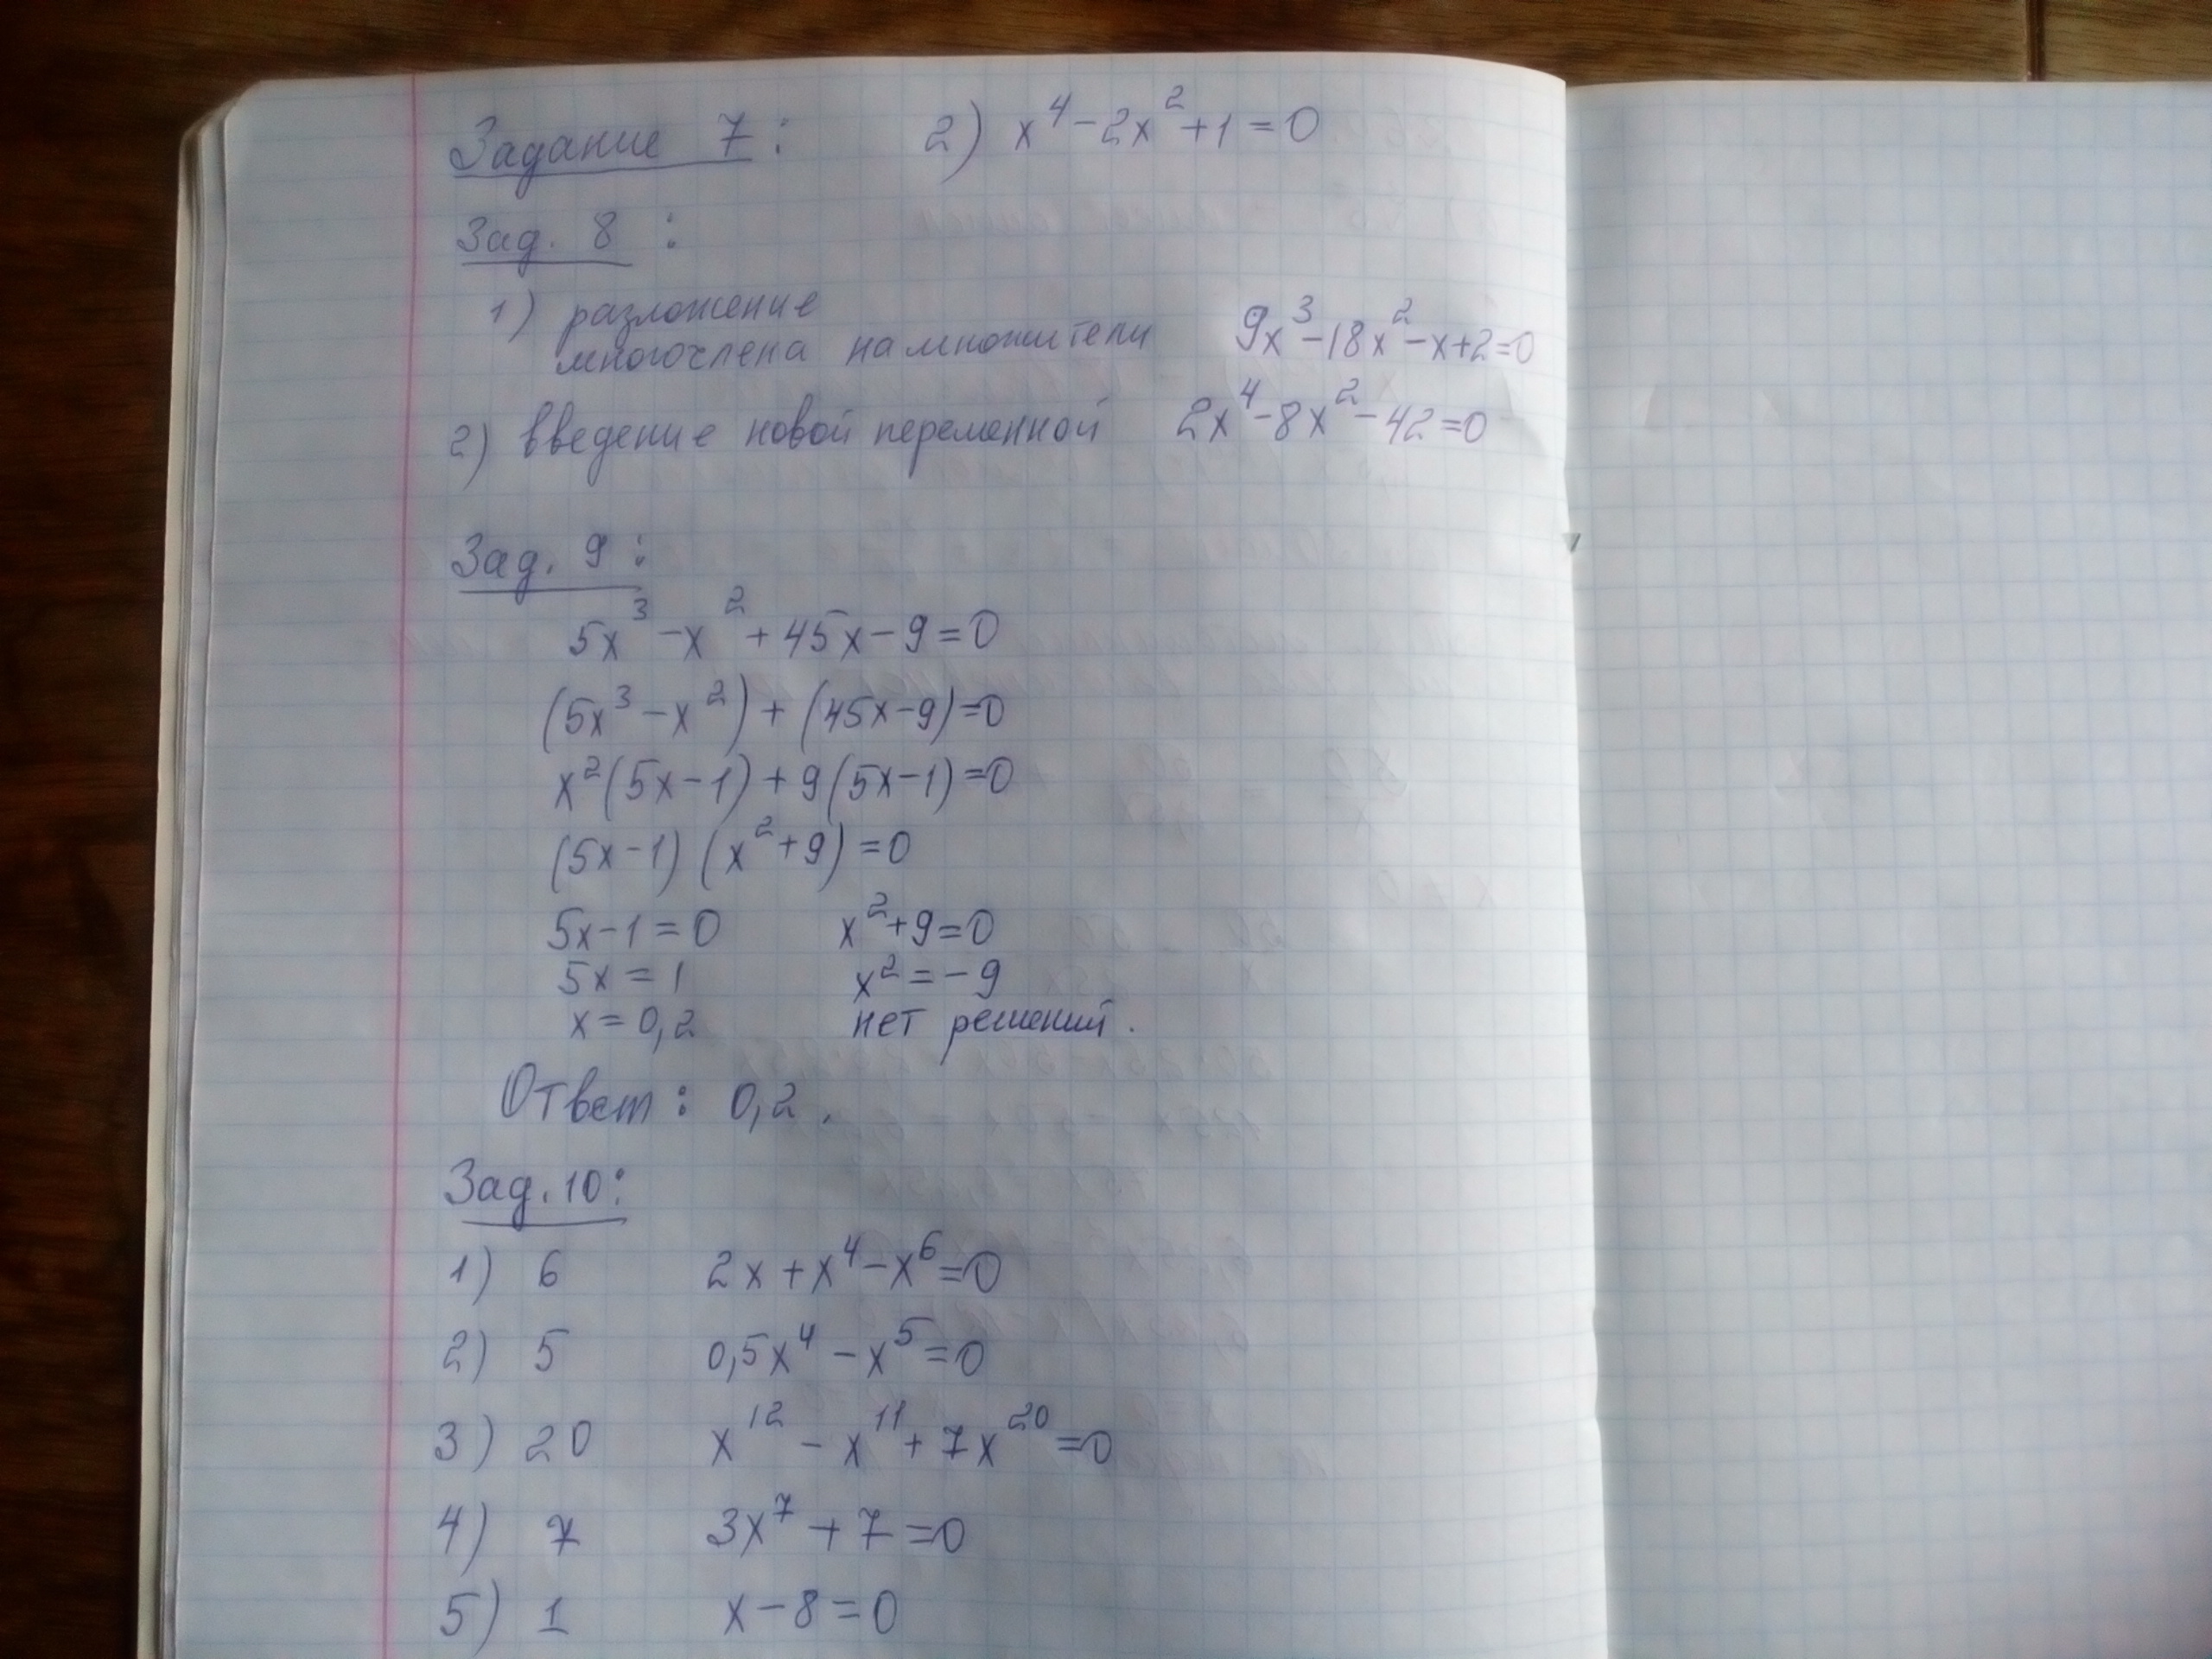 Задание 7: 2) x⁴-2x²+1=0
Зад. 8 :
1) разложение
многочлена на множители 9x³-18x²-x+2=0
2) введение новой переменной 2x⁴-8x²-42=0
Зад. 9 :
5x³-x²+45x-9=0
(5x³-x²)+(45x-9)=0
x²(5x-1)+9(5x-1)=0
(5x-1)(x²+9)=0
5x-1=0 x²+9=0
5x=1 x²=-9
x=0,2 нет решений.
Ответ: 0,2.
Зад. 10:
1) 6 2x+x⁴-x⁶=0
2) 5 0,5x⁴-x⁵=0
3) 20 x¹²-x¹¹+7x²⁰=0
4) 7 3x⁷+7=0
5) 1 x-8=0